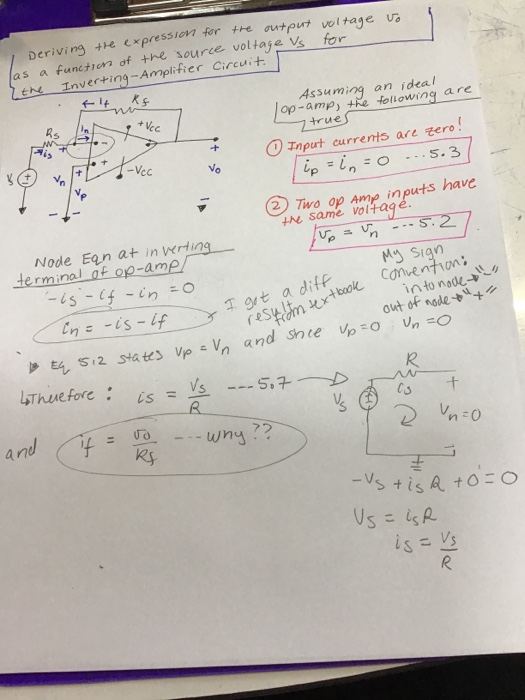 Deriving the expression for the output voltage vo
as a function of the source voltage Vs for
the Inverting-Amplifier Circuit.
Assuming an ideal
op-amp, the following are
true
← if Rf
Rs
in
+Vcc
is
+
-
+
-Vcc
Vn
+
Vp
+
Vo
-
① Input currents are zero!
ip = in = 0 ...5.3
② Two op Amp inputs have
the same voltage.
Vp = Vn ---5.2
Node Eqn at inverting
terminal of op-amp
-is - if - in = 0
in = -is - if
I got a diff
result from textbook
My sign
convention:
into node → "-"
out of node → "+"
Eq 5.2 states Vp = Vn and since Vp = 0 Vn = 0
↳ Therefore: is = Vs/R ---5.7
and if = vo/Rf ---why??
R
is
+
Vs
Vn = 0
-
-Vs + is R + 0 = 0
Vs = is R
is = Vs/R